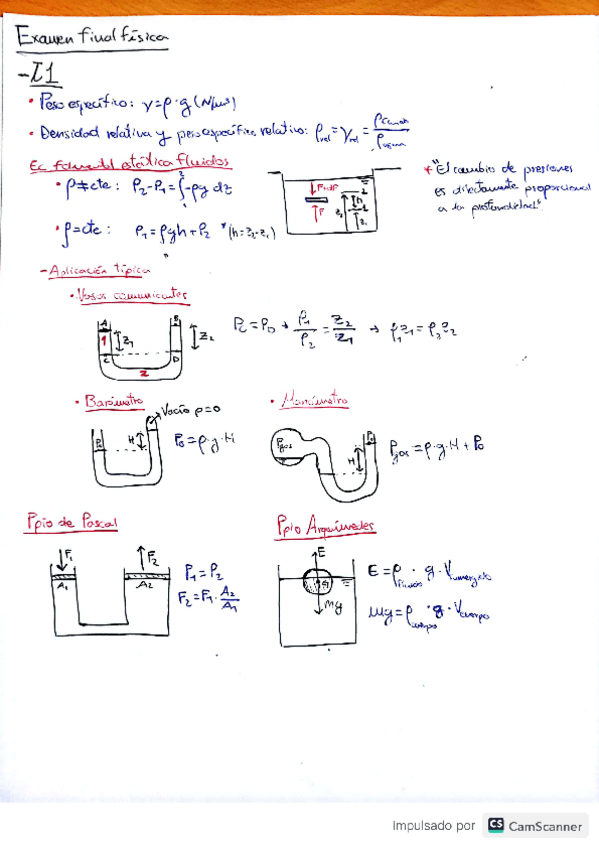 Examen final física
- I1
• Peso específico: γ = ρ · g (N/m³)
• Densidad relativa y peso específico relativo: ρrel = γrel = / ρagua
Ec fdamental estática fluidos
• ρ ≠ cte: P₂ - P₁ = ∫₁² -ρg dz
• ρ = cte: P₁ = ρgh + P₂ *(h = z₂ - z₁)
* "El cambio de presiones
es directamente proporcional
a la profundidad"
F+dF
F
- Aplicación típica
• Vasos comunicantes
A
B
1
Z₁
Z₂
C
D
2
Pc = PD → ρ₁/ρ₂ = Z₂/Z₁ → ρ₁z₁ = ρ₂z₂
• Barómetro
Vacío p=0
P₀
H
P₀ = ρ · g · H
• Manómetro
Pgas
P₀
H
Pgas = ρ · g · H + P₀
Ppio de Pascal
F₁
F₂
A₁
A₂
P₁ = P₂
F₂ = F₁ · A₂/A₁
Ppio Arquímedes
E
Mg
E = ρfluido · g · Vsumergido
Mg = ρcuerpo · g · Vcuerpo
Impulsado por CS CamScanner